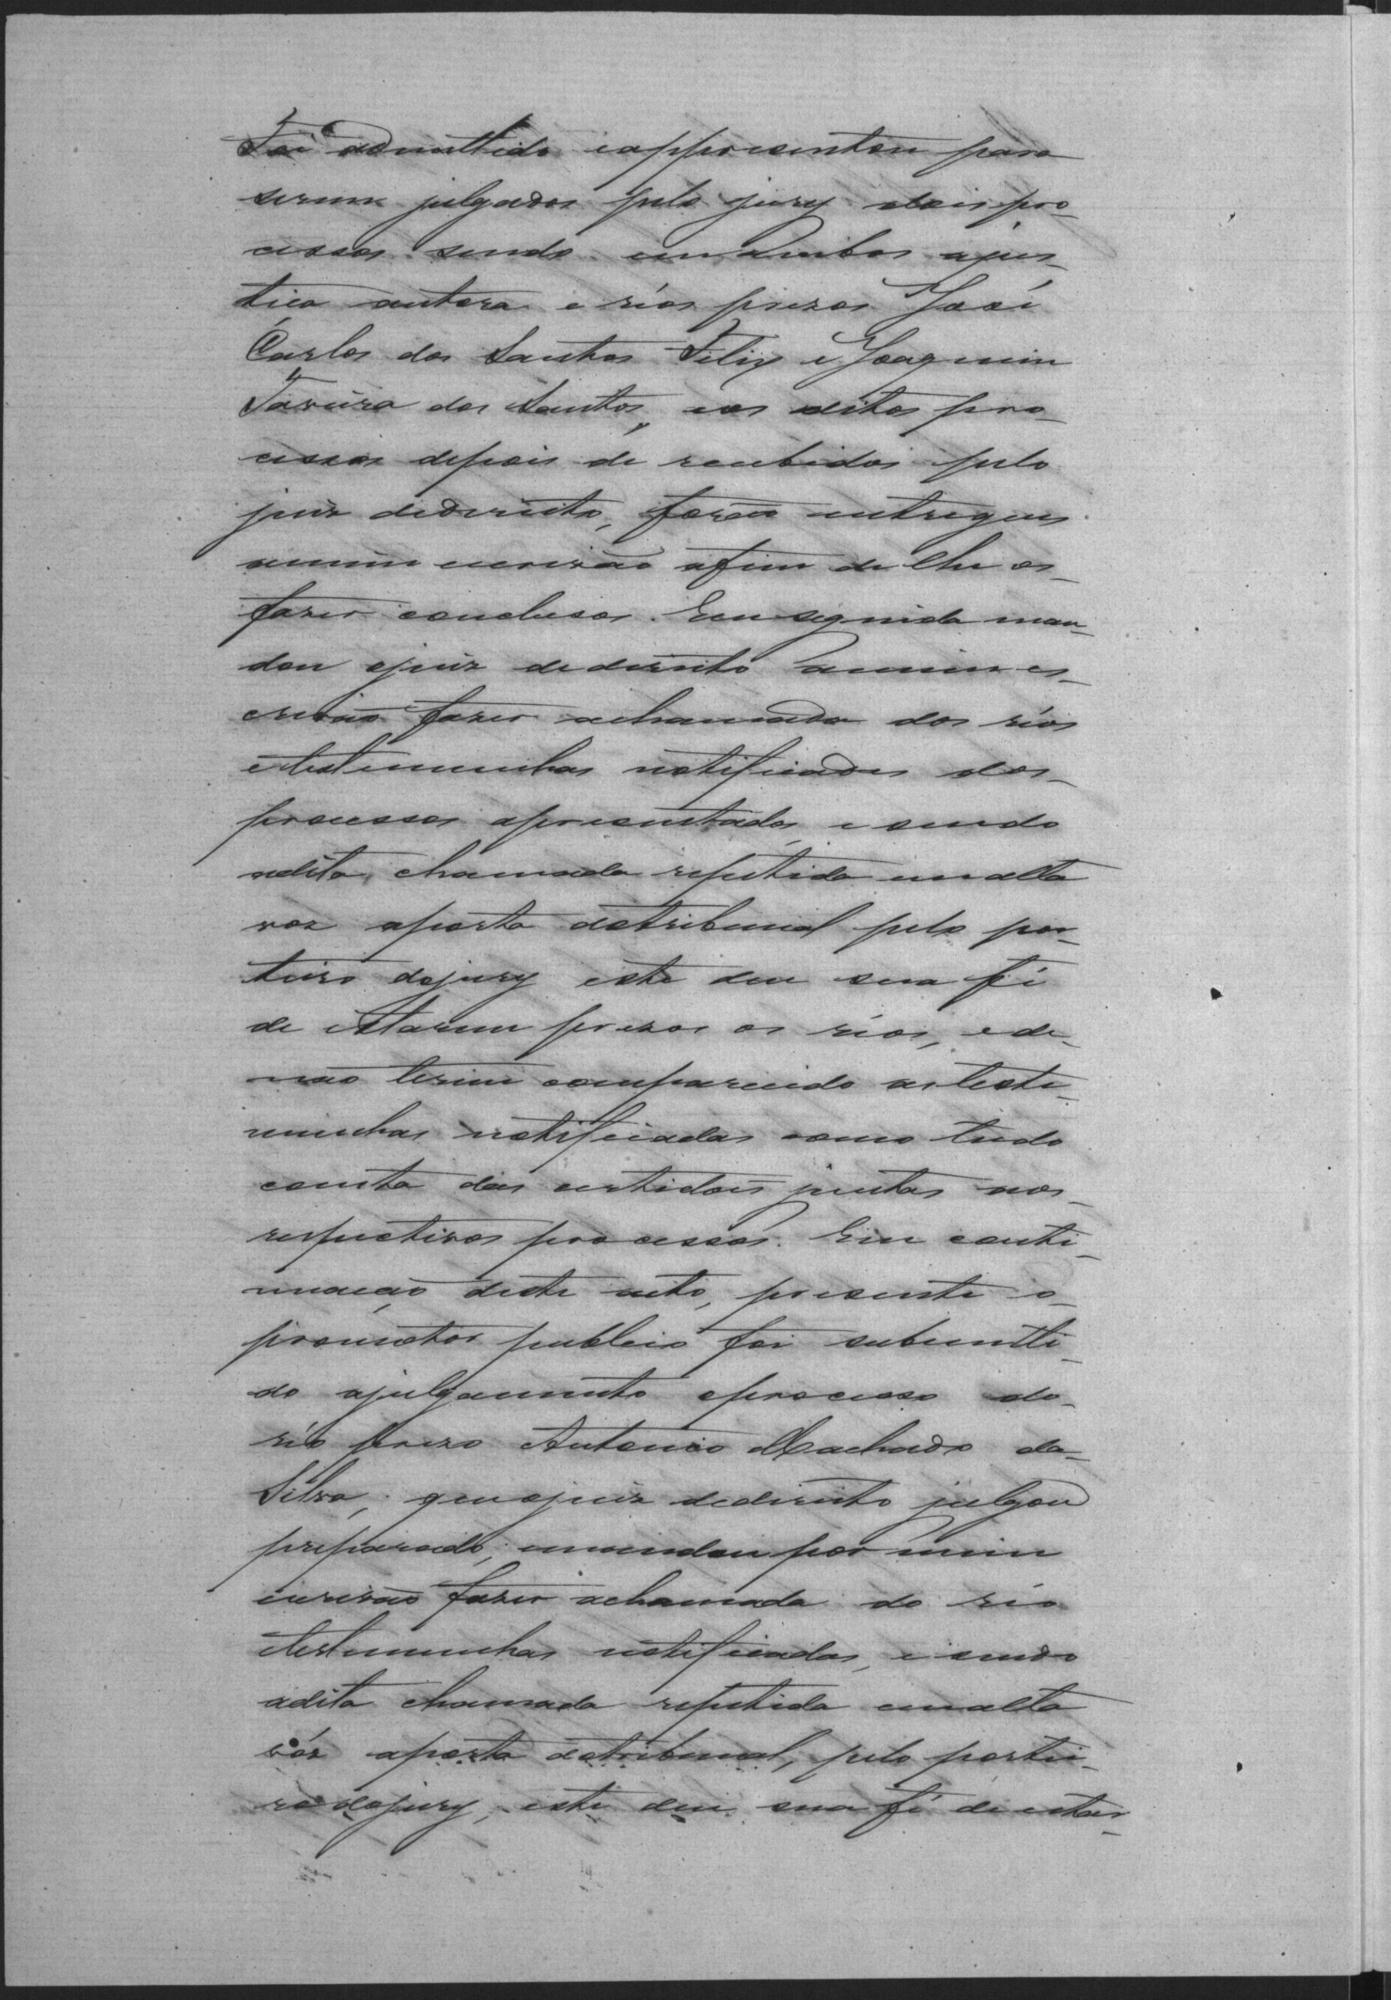 Foi admittido e appresentou para
serem julgados pelo jury dois pro-
cessos sendo em ambos a jus-
tiça autora e réos prezos José
Carlos dos Santos Felix e Joaquim
Taveira dos Santos, e os ditos pro-
cessos depois de recebidos pelo
juiz de direito, forão entregues
a mim escrivão afim de lhe os
fazer conclusos. Em seguida man-
dou o juiz de direito a mim es-
crivão fazer a chamada dos réos
e testemunhas notificadas dos
processos apresentados, e sendo
a dita chamada repetida em alta
voz a porta do tribunal pelo por-
teiro do jury este deu sua fé
de estarem prezos os réos, e de
não terem comparecido as teste-
munhas notificadas como tudo
consta das certidões juntas aos
respectivos processos. Em conti-
nuação deste acto, presente o
promotor publico foi submetti-
do a julgamento o processo do
réo prezo Antonio Machado da
Silva, que o juiz de direito julgou
preparado, e mandou por mim
escrivão fazer a chamada do réo
e testemunhas notificadas, e sendo
a dita chamada repetida em alta
vóz a porta do tribunal, pelo portei-
ro do jury, este deu sua fé de estar